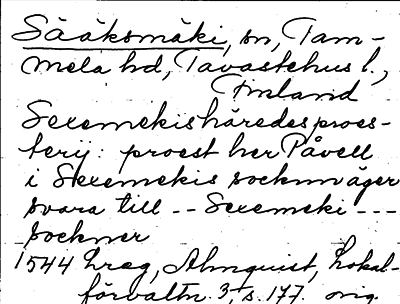 Sääksmäki, sn, Tam-
mela hd, Tavastehus l.,
Finland
Sexemekis häredes proes-
terij: proest her Påvell
i Sexemekis socknn äger
svara till -- Sexemeki ---
sockner
1544 Lreg, Almquist, Lokal-
förvaltn. 3:4, s. 177. orig.